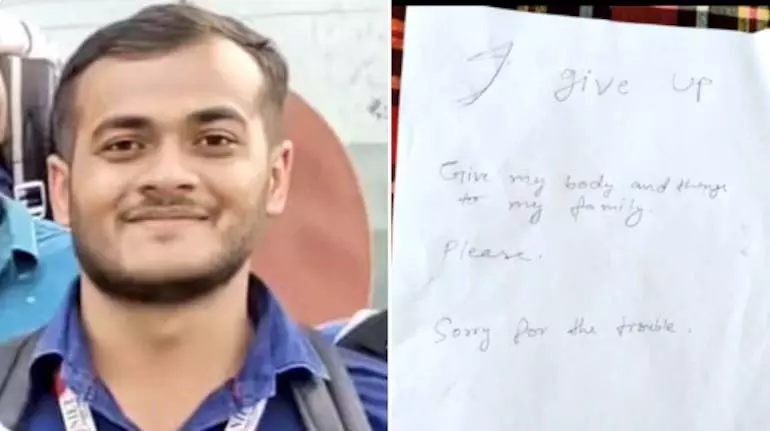 I give up
Give my body and things
to my family.
Please.
Sorry for the trouble.